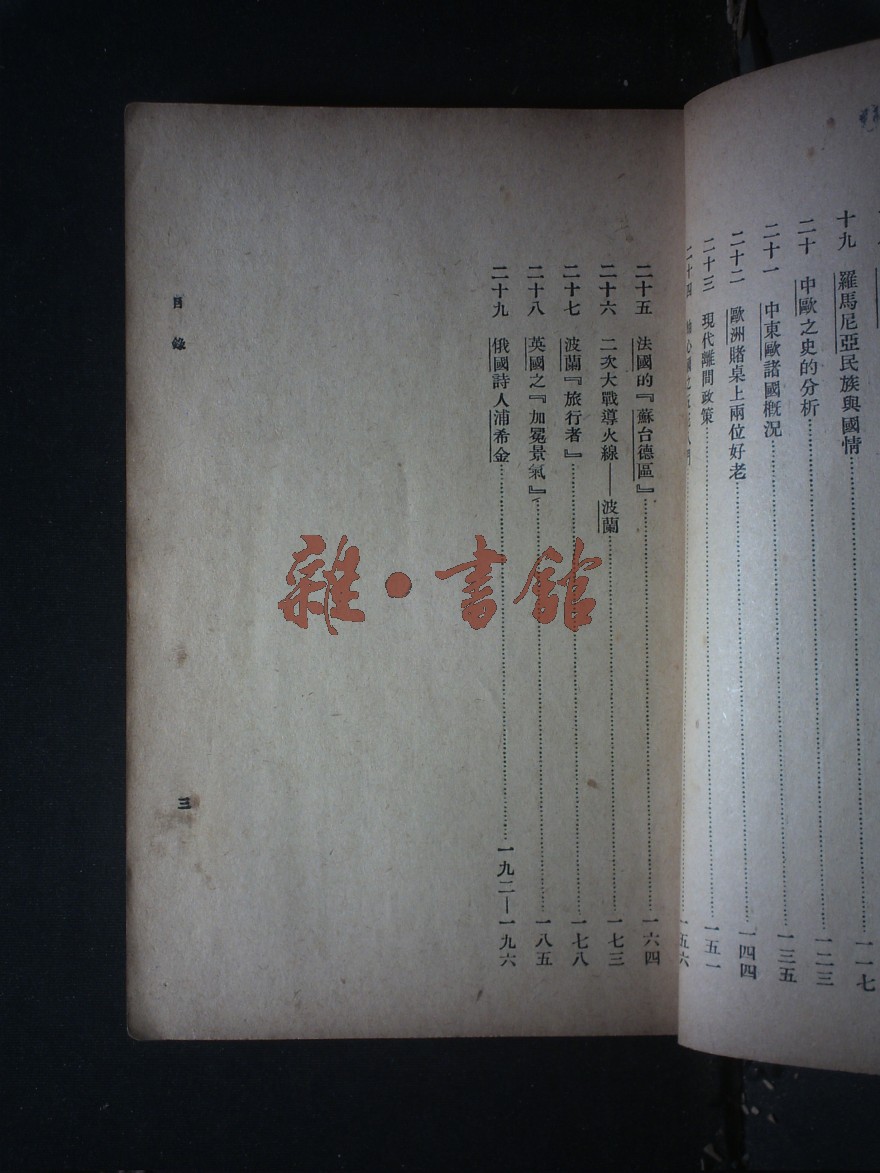 十九 羅馬尼亞民族與國情 一一七
二十 中歐之史的分析 一二三
二十一 中東歐諸國概況 一三五
二十二 歐洲賭桌上兩位好老 一四四
二十三 現代離間政策 一五一
二十四 一五六
二十五 法國的『蘇台德區』 一六四
二十六 二次大戰導火線——波蘭 一七三
二十七 波蘭『旅行者』 一七八
二十八 英國之『加冕景氣』 一八五
二十九 俄國詩人浦希金 一九二—一九六
目錄
三
雜·書館